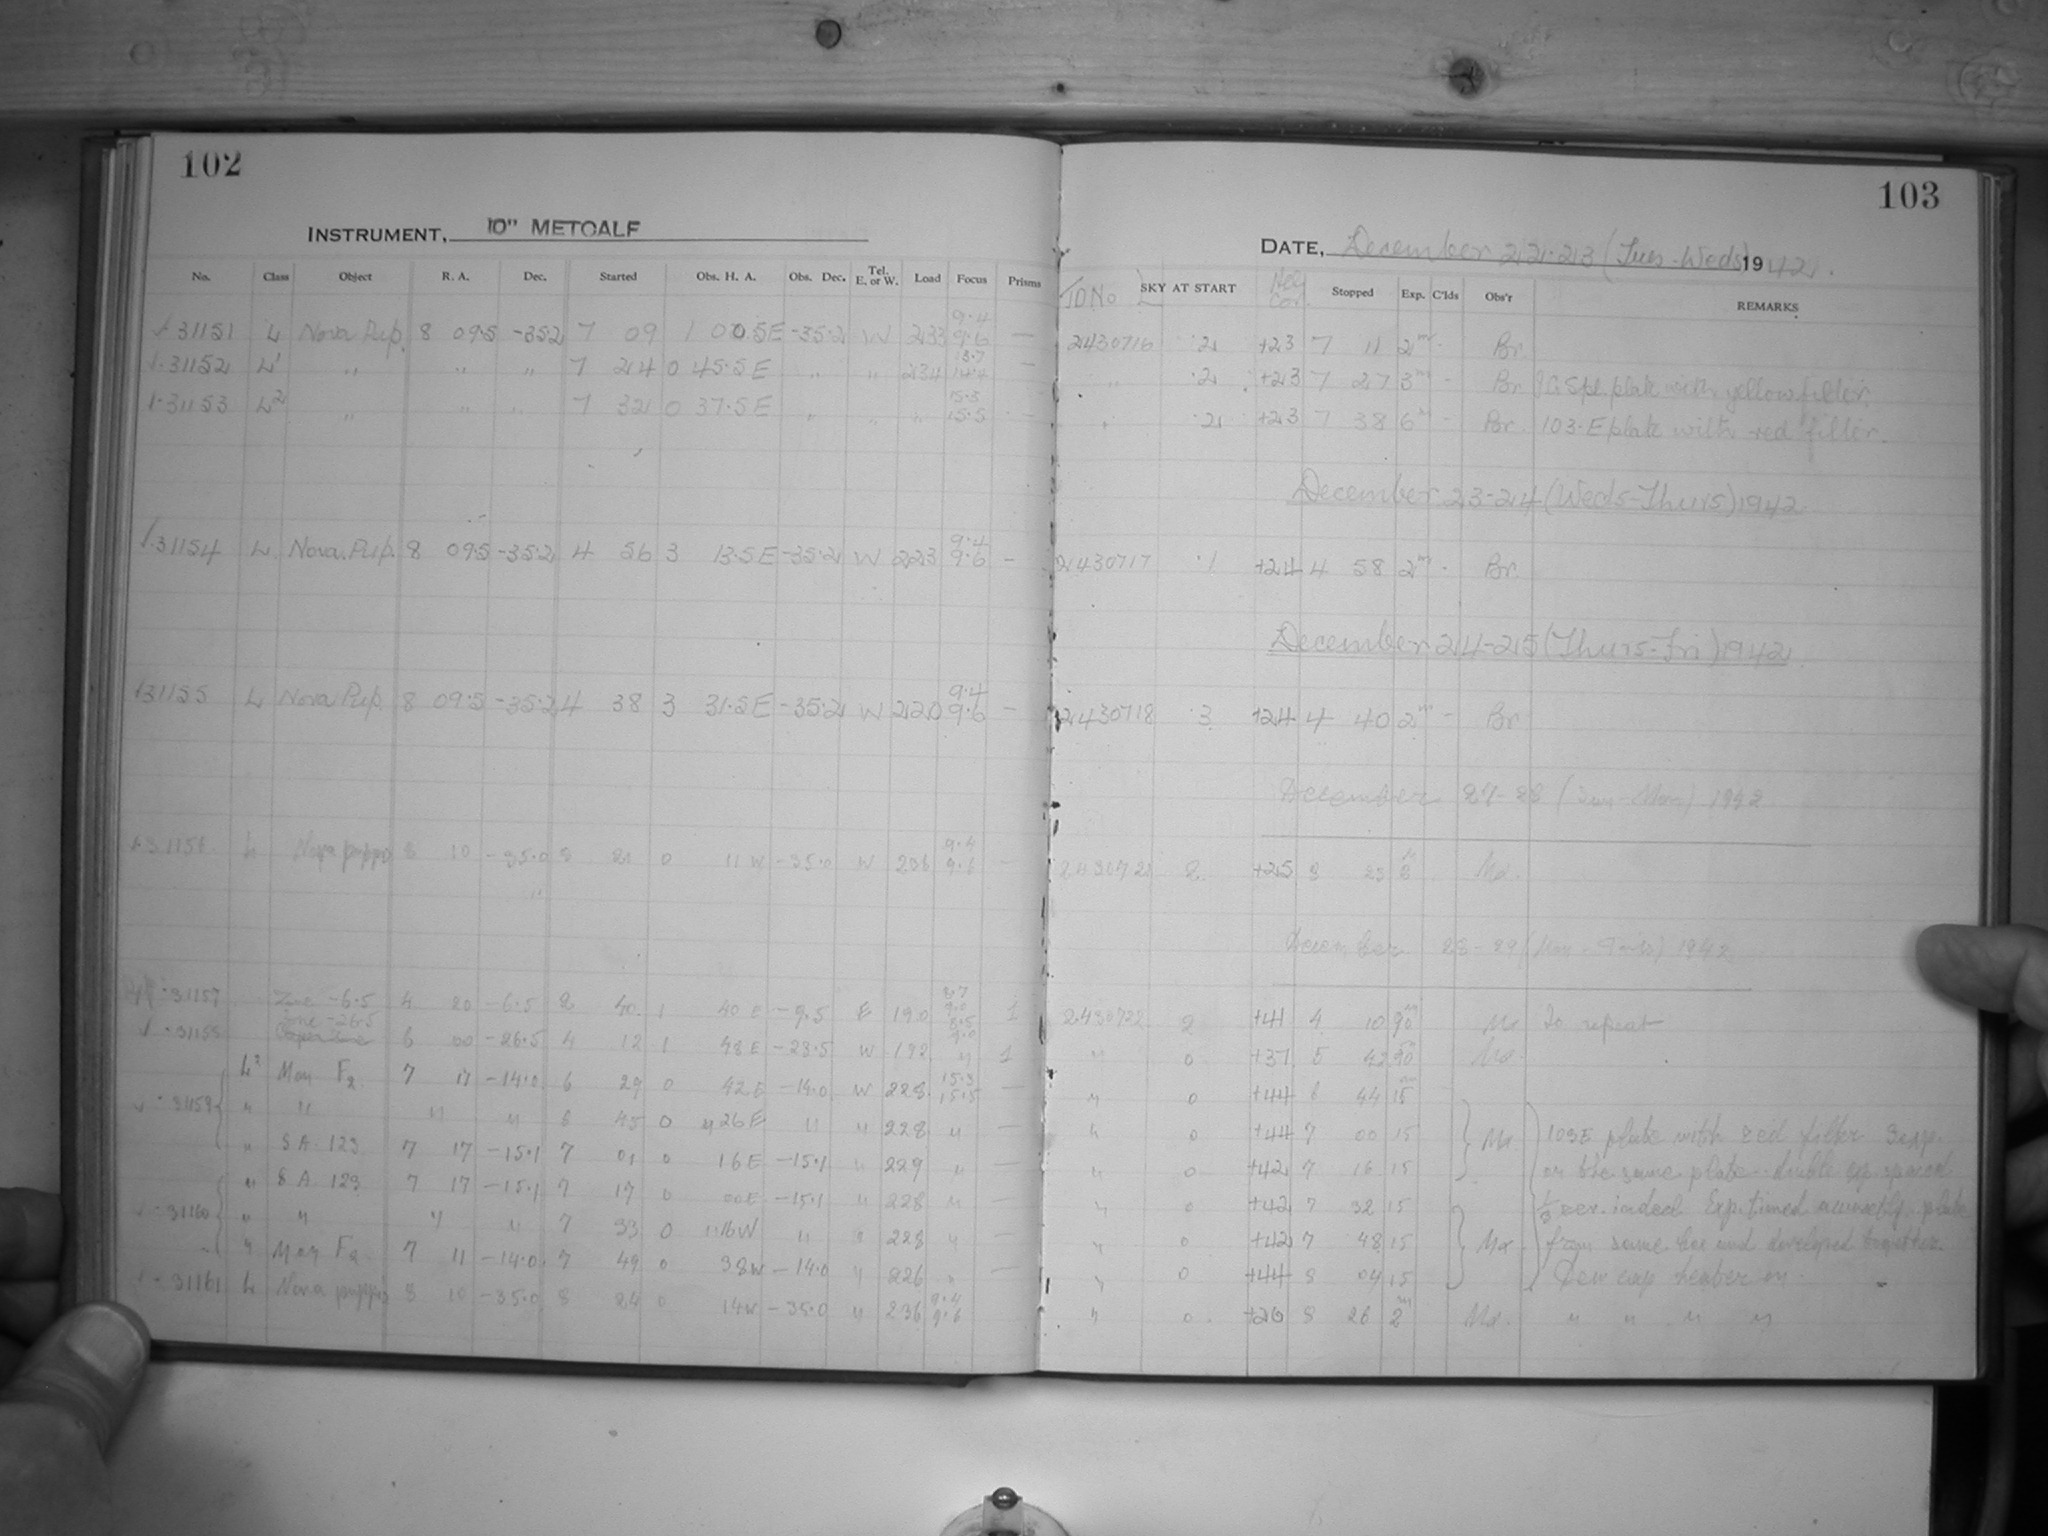 102
INSTRUMENT, 10" METCALF
No. Class Object R. A. Dec. Started Obs. H. A. Obs. Dec. Tel. E. or W. Load Focus Prisms
31151 L Nova Pup. 8 09.5 -35.2 7 09 1 00.5E -35.2 W 233 9.4 9.6 —
31152 L' " " " 7 24 0 45.5E " " 234 13.7 14.4 —
31153 L2 " " " 7 32 0 37.5E " " 15.3 15.5 -
31154 L Nova Pup. 8 09.5 -35.2 4 56 3 13.5E -35.2 W 223 9.4 9.6 —
31155 L Nova Pup. 8 09.5 -35.2 4 38 3 31.5E -35.2 W 220 9.4 9.6 —
31156 L Nova puppis 8 10 -35.0 8 21 0 11 W -35.0 W 236 9.4 9.6 —
31157 Zone -6.5 4 20 -6.5 2 40 1 40 E -9.5 E 190 8.7 9.0 1
Zone -26.5 8.5
31158 6 00 -26.5 4 12 1 48 E -28.5 W 192 9.0 " 1
L2 Mon F2 7 11 -14.0 6 29 0 42 E -14.0 W 228 15.3 15.5 —
31159 " " " " 6 45 0 26 E " " 228 " —
" S A 123 7 17 -15.1 7 01 0 16 E -15.1 " 229 " —
" S A 123 7 17 -15.1 7 17 0 00 E -15.1 " 228 "
31160 " " " " 7 33 0 16 W " " 228 "
" Mon F2 7 11 -14.0 7 49 0 38 W -14.0 " 226 " —
31161 L Nova puppis 8 10 -35.0 8 24 0 14 W -35.0 " 236 9.4 9.6
103
DATE, December 22-23 (Tues-Weds) 1942.
JD No SKY AT START Hel Cor. Stopped Exp. C'lds Obs'r REMARKS
2430716 2 +23 7 11 2m - Br.
" 2 +23 7 27 3m - Br plate with yellow filter.
" 2 +23 7 38 6m - Br. 103-E plate with red filter.
December 23-24 (Weds-Thurs) 1942
2430717 1 +24 4 58 2m - Br.
December 24-25 (Thurs-Fri) 1942
2430718 3 +24 4 40 2m - Br
December 27-28 (Sun-Mon) 1942
2430721 2 +25 8 23 2m Ma.
December 28-29 (Mon-Tues) 1942
2430722 2 +41 4 10 90m Ma To repeat
" 0 +37 5 42 90m Ma.
" 0 +44 6 44 15m
" 0 +44 7 00 15 Ma 103E plate with red filter 3 exp.
" 0 +42 7 16 15 on the same plate
" 0 +42 7 32 15 Exp. timed plate
" 0 +42 7 48 15 Ma from same box and developed together.
" 0 +44 8 04 15 Dew cap heater on.
" 0 +26 8 26 2m Ma. " " " "